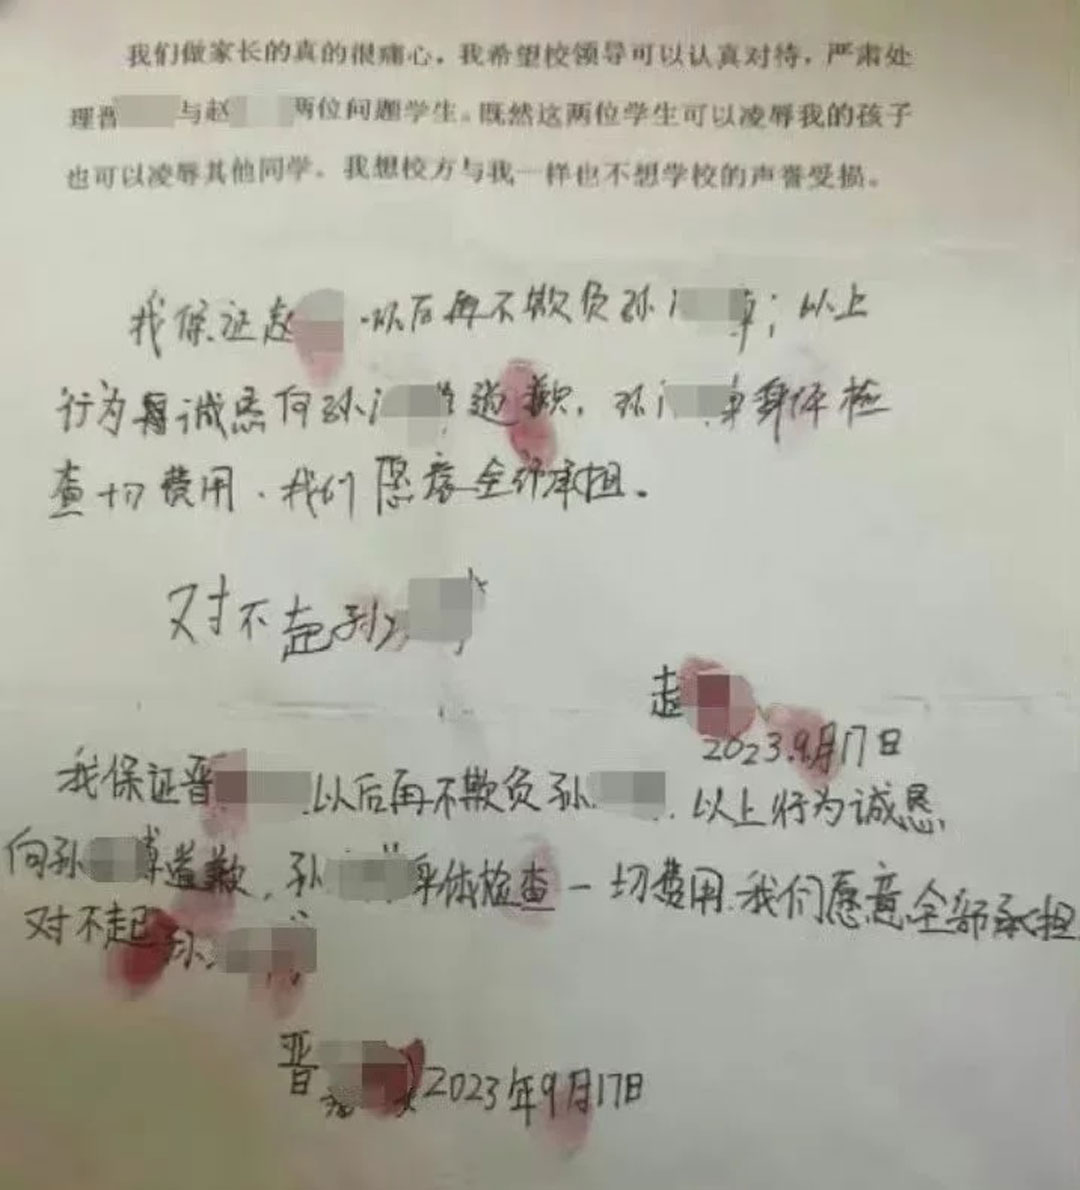 我们做家长的真的很痛心，我希望校领导可以认真对待，严肃处
理晋 与赵 两位问题学生。既然这两位学生可以凌辱我的孩子
也可以凌辱其他同学。我想校方与我一样也不想学校的声誉受损。
我保证赵 以后再不欺负孙 ；以上
行为 诚恳向孙 道歉，孙 身体检
查一切费用，我们愿意全部承担。
对不起孙
赵
2023.9月17日
我保证晋 以后再不欺负孙 ，以上行为诚恳
向孙 道歉，孙 身体检查一切费用，我们愿意全部承担
对不起孙
晋 2023年9月17日